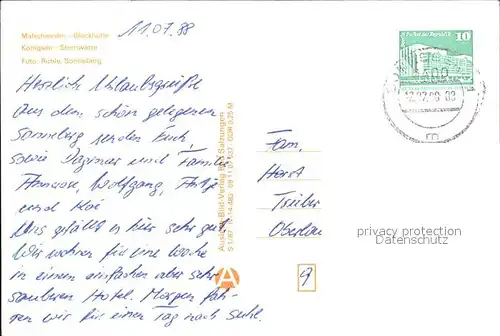 Mutschwiesen - Blockhütte
11.07.88
Königsein - Sternwarte
Foto: Richle, Sonneberg
Herzliche Urlaubsgrüße
aus dem schön gelegenen
Sonneberg senden Euch,
sowie Dagmar und Familie
Annerose, Wolfgang, Antje
und Kai
Uns gefällt es hier sehr gut
Wir wohnen für eine Woche
in einem einfachen aber sehr
sauberen Hotel. Morgen fah-
ren wir für einen Tag nach Suhl.
Auslese-Bild-Verlag Bad Salzungen
DDR 0,25 M
10
12.07.88
m
Fam.
Horst
Oberlau
privacy protection
Datenschutz
A